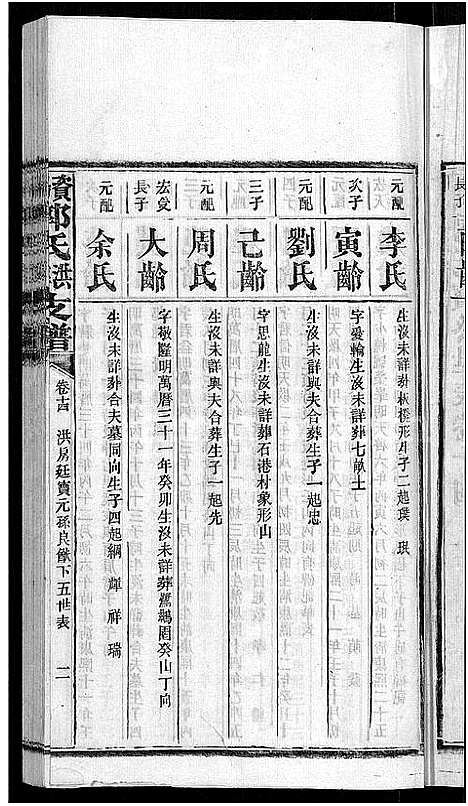 元配
李氏
生沒未詳葬板橙形生子二起璞 珉
次子
寅齡
字愛輪生沒未詳葬七畝土
元配
劉氏
生沒未詳與夫合葬生子一起忠
三子
己齡
字思龍生沒未詳葬石港村象形山
元配
周氏
生沒未詳與夫合葬生子一起先
宏㚖
長子
大齡
字敬隆明萬曆三十一年癸卯生沒未詳葬鴛鵝圈癸山丁向
元配
余氏
生沒未詳葬合夫墓同向生子四起綱 輝 祥 瑞
資鄒氏洪支譜
卷十四 洪房廷寶元孫良猷下五世表 二